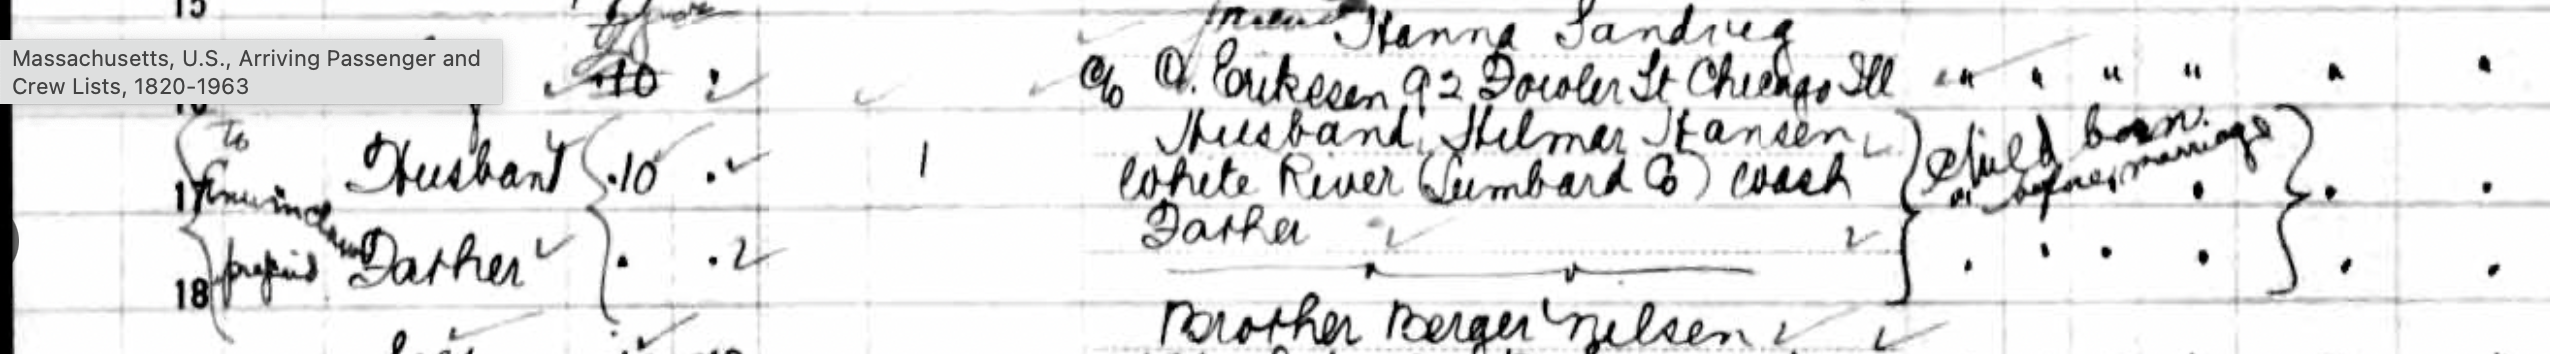 15
Hanna Sandvig
Massachusetts, U.S., Arriving Passenger and
Crew Lists, 1820-1963
10 " c/o O. Eriksen 92 Fowler St Chicago Ill " " " " " "
to
Husband Hilmar Hansen
17 Husband 10 1 White River (Lumbard Co) Wash child born
before marriage
Father
18 prepaid Father
Brother Berger Nelsen